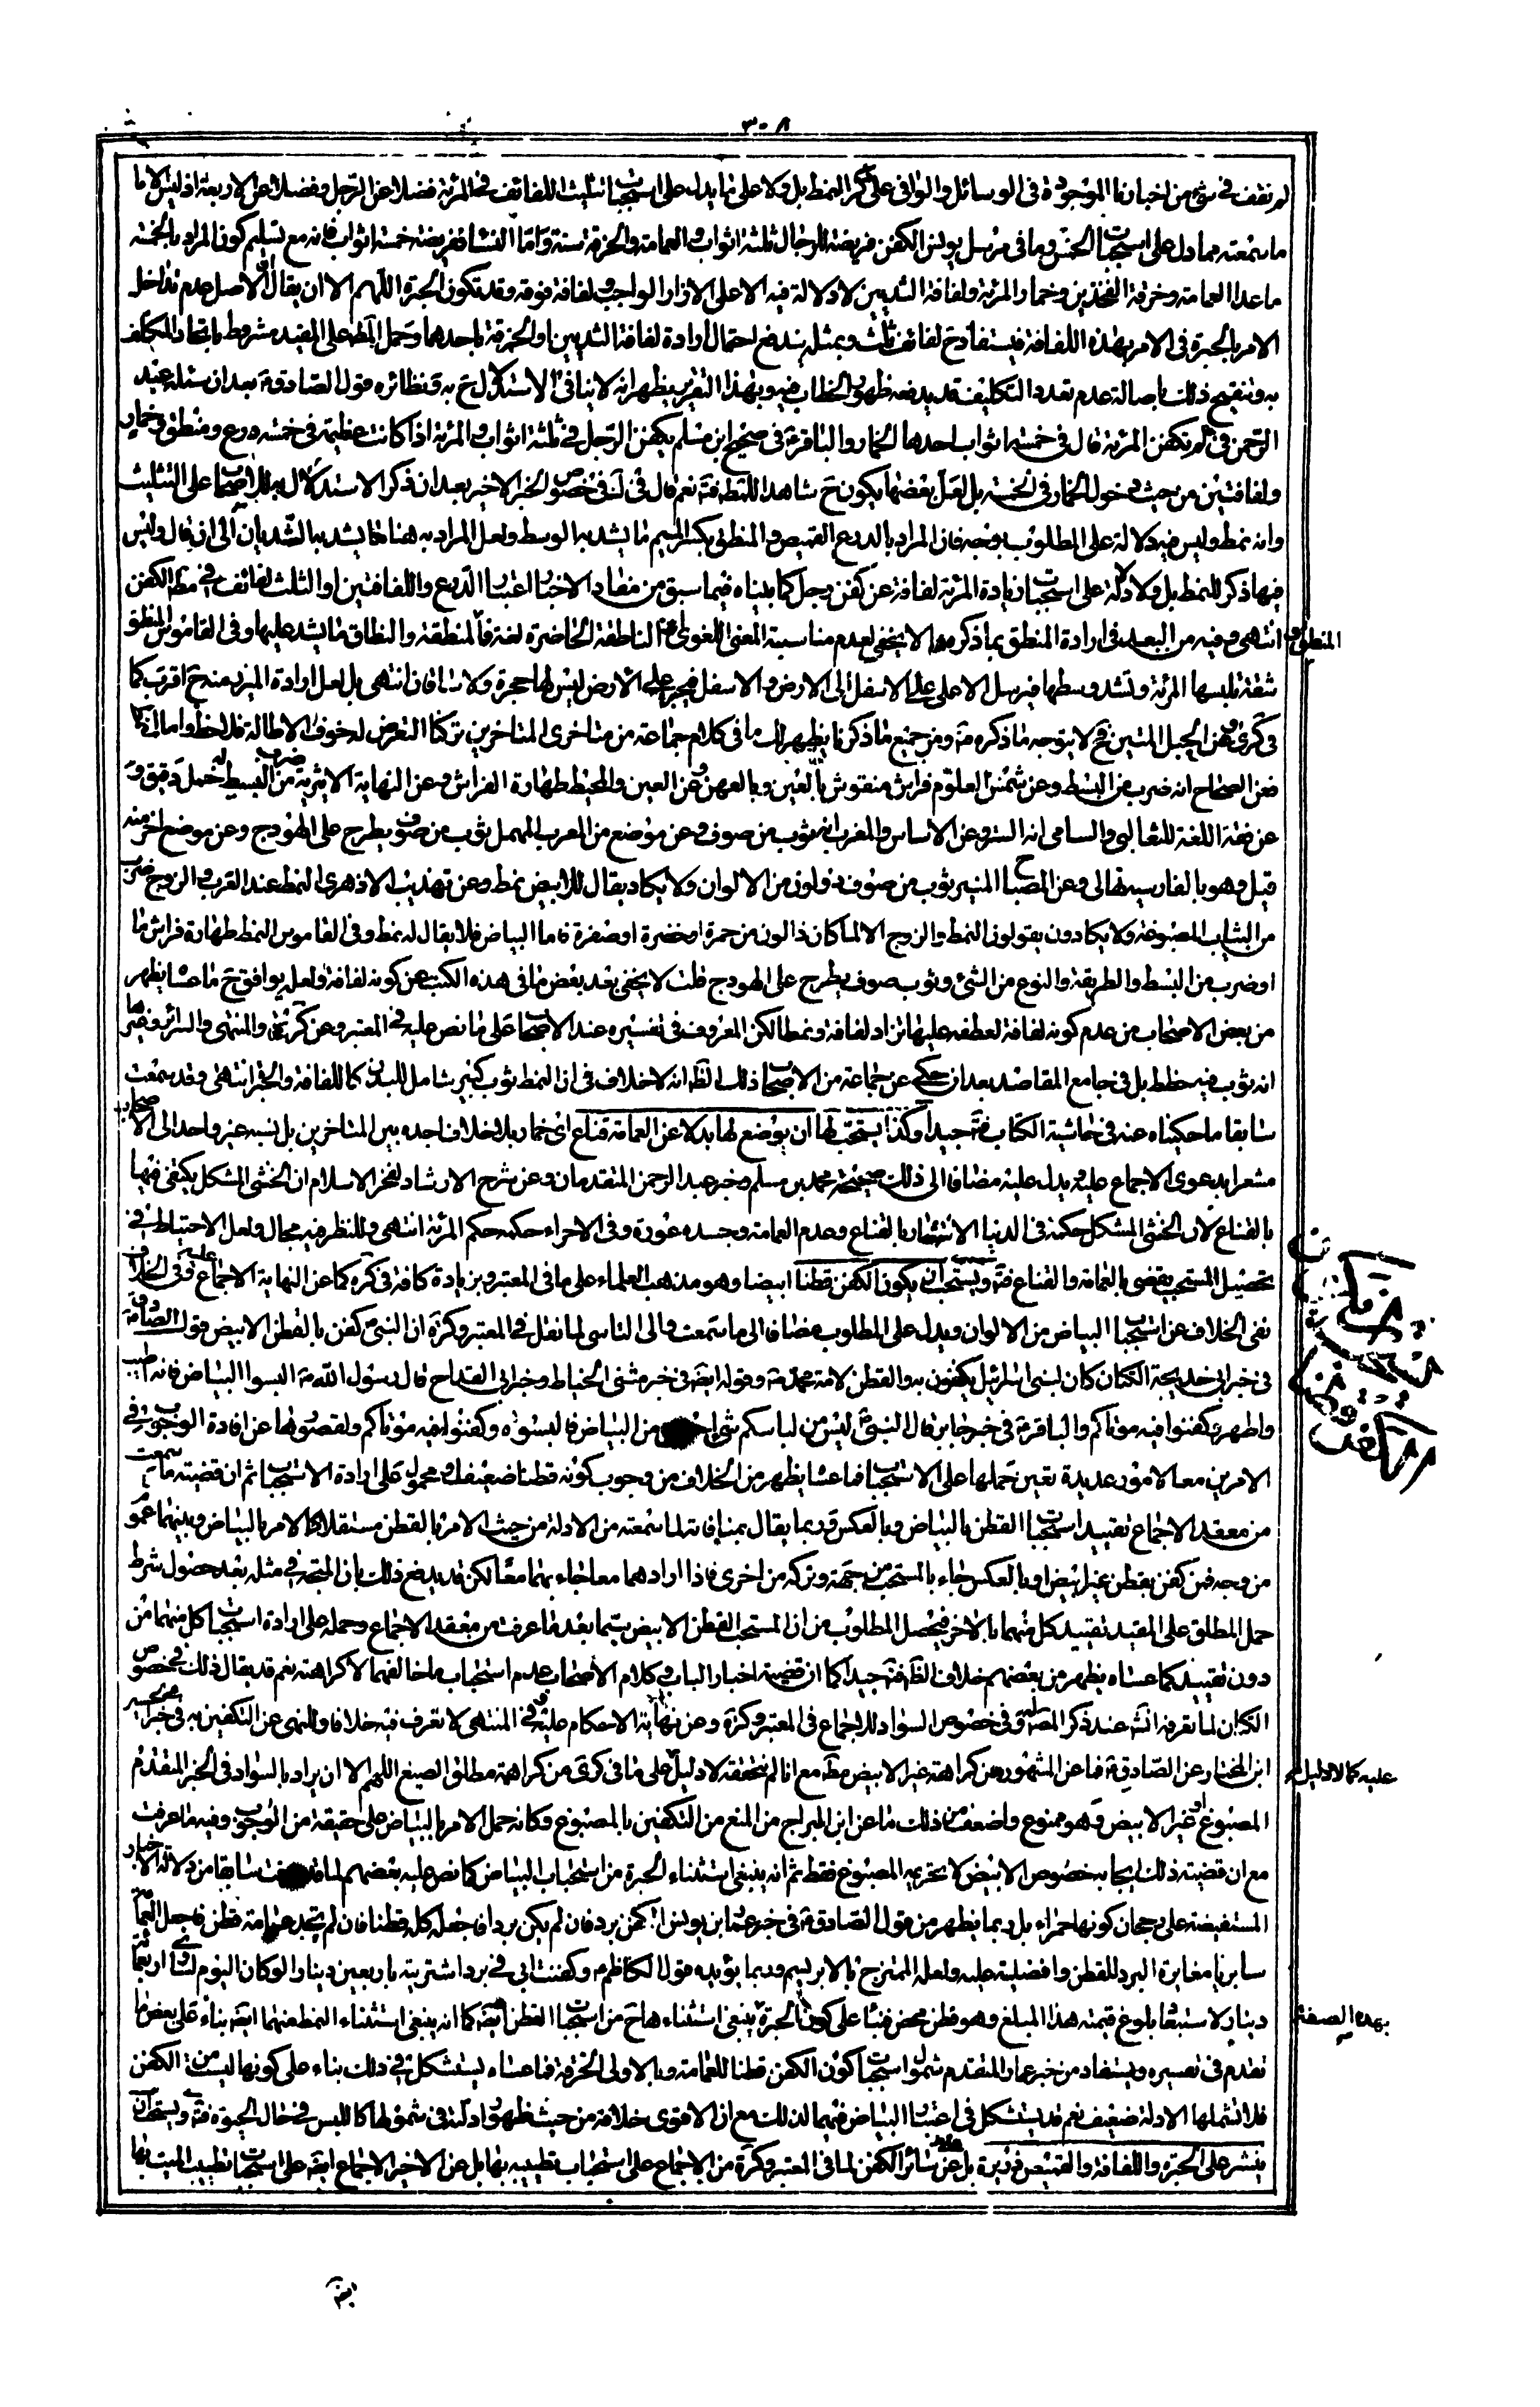 ٣٠٨
لم نقف في شئ من اخبارنا الموجودة في الوسائل والوافي على ذكر النمط بل ولا على ما يدل على استحباب تثليث اللفائف في المرئة فضلا عن الرجل وفضلا عن الاربعة اذ ليس الا ما
ما سمعته مما دل على استحباب الخمس وما في مرسل يونس الكفن فريضة للرجال ثلثة اثواب والعمامة والخرقة سنة واما النساء ففريضته خمسة اثواب فانه مع تسليم كون المراد بالخمسة
ما عدا العمامة وخرقة الفخذين وخمار المرئة ولفافة الثديين لا دلالة فيه الا على الازار الواجب ولفافة فوقه وقد تكون الحبرة اللهم الا ان يقال ان الاصل عدم تداخل
الامر بالحبرة في الامر بهذه اللفافة فيستفاد ح لفائف ثلث وبمثله يندفع احتمال ارادة لفافة الثديين او الخرقة باحدهما وحمل المط على المقيد مشروط باتحاد المكلف
به وتنقيح ذلك باصالة عدم تعدد التكليف قد يدفعه ظهور الخطاب فيه وبهذا التقرير يظهر انه لا ينافى الاستدلال ح به ونظائره قول الصادق ع بعد ان سئله عبد
الرحمن في كم تكفن المرئة قال في خمسة اثواب احدها الخمار والباقر ع في صحيح ابن مسلم يكفن الرجل في ثلثة اثواب والمرئة اذا كانت عظيمة في خمسة درع ومنطق وخمار
ولفافتين من حيث دخول الخمار في الخمسة بل لعل بعضها يكون ح شاهدا للنمط فت نعم قال في ك في خصوص الخبر الاخير بعد ان ذكر الاستدلال به للاصحاب على التثليث
وانه نمط وليس فيه دلالة على المطلوب بوجه فان المراد بالدرع القميص والمنطق بكسر الميم ما يشد به الوسط ولعل المراد به هنا ما يشد به الثديان الى ان قال وليس
فيها ذكر للنمط بل ولا دلالة على استحباب زيادة المرئة لفافة عن كفن رجل كما بيناه فيما سبق من مفاد الاخبار اعتبار الدرع واللفافتين او الثلث لفائف في مط الكفن
انتهى وفيه من البعد في ارادة المنطق بما ذكره ما لا يخفى لعدم مناسبة المعنى اللغوي الناطقة الخاصرة لغة فالمنطقة والنطاق ما يشد عليها وفى القاموس المنطق
المنطق و
شقة تلبسها المرئة وتشد وسطها فترسل الاعلى على الاسفل الى الارض والاسفل ينجر على الارض ليس لها حجزة ولا ساقان انتهى بل لعل ارادة الميزر منه ح اقرب كما
في كرى وعن الحبل المتين فح لا يتوجه ما ذكره ومن جميع ما ذكرنا يظهر لك ما في كلام جماعة من متاخرى المتاخرين تركنا التعرض له خوف الاطالة
فعن الصحاح انه ضرب من البسط وعن شمس العلوم فراش منقوش بالعين وبالعهن وعن العين والمحيط ظهارة الفراش وعن النهاية الاثيرية ضرب من البسط له خمل رقيق و
عن فقه اللغة للثعالبي والسامى انه الستر وعن الاساس والمغرب انه ثوب من صوف وعن موضع من المعرب المهمل ثوب من صوف يطرح على الهودج وعن موضع اخر منه
قيل وهو بالفارسية نهالي وعن المصباح المنير ثوب من صوف ذو لون من الالوان ولا يكاد يقال للابيض نمط وعن تهذيب الازهرى النمط عند العرب والزوج ضرب
من الثياب المصبوغة ولا يكادون يقولون النمط والزوج الا لما كان ذا لون من حمرة او خضرة او صفرة فاما البياض فلا يقال له نمط وفى القاموس النمط ظهارة فراش ما
او ضرب من البسط والطريقة والنوع من الشئ وثوب صوف يطرح على الهودج قلت لا يخفى بعد بعض ما في هذه الكتب عن كونه لفافة ولعله يوافق ح ما عساه يظهر
من بعض الاصحاب من عدم كونه لفافة لعطفه عليها تزاد لفافة ونمطا لكن المعروف في تفسيره عند الاصحاب على ما نص عليه في المعتبر وعن كره والمنتهى والسرائر وغيرها
انه ثوب فيه خطط بل في جامع المقاصد بعد ان حكى عن جماعة من الاصحاب ذلك الظ انه لا خلاف في ان النمط ثوب كبير شامل للبدن كاللفافة والحبرة انتهى وقد سمعت
سابقا ما حكيناه عنه في حاشية الكتاب فت جيدا وكذا يستحب لها ان يوضع لها بدلا عن العمامة قناع اى خمار بلا خلاف اجده بين المتاخرين بل نسبه غير واحد الى الاصحاب
مشعرا بدعوى الاجماع عليه ويدل عليه مضافا الى ذلك صحيحة محمد بن مسلم وخبر عبد الرحمن المتقدمان وعن شرح الارشاد لفخر الاسلام ان الخنثى المشكل يكتفى فيها
بالقناع لان الخنثى المشكل حكمه في الدنيا الاستتار بالقناع وعدم العمامة وجسده عورة وفى الاحراء حكمه حكم المرئة انتهى وللنظر فيه مجال ولعل الاحتياط في
تحصيل المستحب يقضى بالعمامة والقناع فت ويستحب ان يكون الكفن قطنا ابيضا وهو مذهب العلماء على ما في المعتبر وبزيادة كافة في كره كما عن النهاية الاجماع عليه وفى الخلاف
نفى الخلاف عن استحباب البياض من الالوان ويدل على المطلوب مضافا الى ما سمعت والى التاسى لما نقل في المعتبر وكره ان النبي ص كفن بالقطن الابيض قول الصادق ع
في خبر ابى خديجة الكتان كان لبنى اسرائيل يكفنون به والقطن لامة محمد ص وقوله ايضا في خبر مثنى الحناط وخبر ابن القداح قال رسول الله ص البسوا البياض فانه اطيب
واطهر وكفنوا فيه موتاكم والباقر ع في خبر جابر قال النبي ص ليس من لباسكم شئ احسن من البياض فالبسوه وكفنوا فيه موتاكم ولقصورها عن افادة الوجوب في
الامرين معا لامور عديدة تعين حملها على الاستحباب فما عساه يظهر من الخلاف من وجوب كونه قطنا ضعيف او محمول على ارادة الاستحباب ثم ان قضية ما سمعت
من معقد الاجماع تقييد استحباب القطن بالبياض وبالعكس وربما يقال بمنافاته لما سمعته من الادلة من حيث الامر بالقطن مستقلا كالامر بالبياض وبينهما عموم
من وجه فمن كفن بقطن غير ابيض او بالعكس جاء بالمستحب من جهة وتركه من اخرى فاذا ارادهما معا جاء بهما معا لكن قد يدفع ذلك بان المتجه في مثله بعد حصول شرط
حمل المطلق على المقيد تقييد كل منهما بالاخر فيحصل المطلوب من ان المستحب القطن الابيض سيما بعد ما عرفت من معقد الاجماع وحمله على ارادة استحباب كل منهما من
دون تقييد كما عساه يظهر من بعضهم خلاف الظ فت جيدا كما ان قضية اخبار الباب وكلام الاصحاب عدم استحباب ما خالفهما لا كراهته نعم قد يقال ذلك في خصوص
الكتان لما تعرفه انش عند ذكر المص له وفى خصوص السواد للاجماع في المعتبر وكره وعن نهاية الاحكام عليه وفى المنتهى لا نعرف فيه خلافا وللنهى عن التكفين به في خبر الحسين
ابن المختار عن الصادق ع فما عن المشهور من كراهة غير الابيض مط مع انا لم نتحققه لا دليل على ما في كرى من كراهة مطلق الصبغ اللهم الا ان يراد بالسواد في الخبر المتقدم
عليه كما لا دليل
المصبوغ او غير الابيض وهو ممنوع واضعف من ذلك ما عن ابن البراج من المنع من التكفين بالمصبوغ وكانه حمل الامر بالبياض على حقيقة من الوجوب وفيه ما عرفت
مع ان قضية ذلك ايجابه خصوص الابيض لا تحريمه المصبوغ فقط ثم انه ينبغى استثناء الحبرة من استحباب البياض كما نص عليه بعضهم لما عرفت سابقا من دلالة الاخبار
المستفيضة على رجحان كونها حمراء بل ربما يظهر من قول الصادق ع في خبر عمار يكفن برد فان لم يكن بردا فاجعله كله قطنا فان لم تجد عمامة قطن فاجعل العمامة
سابريا مغايرة البرد للقطن وافضليته عليه ولعله الممتزج بالابريسم وربما يؤيده قول الكاظم ع وكفنت ابى في برد اشتريته باربعين دينارا لو كان اليوم لساوى اربعمائة
دينار لاستبعاد بلوغ قيمته هذا المبلغ وهو قطن محض فبناء على كون الحبرة ينبغى استثناءها ح من استحباب القطن ايضا كما انه ينبغى استثناء النمط منهما ايضا بناء على بعض ما
بهذه الصفة
تقدم في تفسيره ويستفاد من خبر عمار المتقدم شمول استحباب كون الكفن قطنا للعمامة وبالاولى الخرقة فما عساه يستشكل في ذلك بناء على كونها ليست من الكفن
فلا تشملها الادلة ضعيف نعم قد يستشكل في اعتبار البياض فيهما لذلك مع ان الاقوى خلافه من حيث ظهور ادلته في شمولها كاللبس في حال الحيوة فت ويستحب ان
ينشر على الحبرة واللفافة والقميص ذريرة بل عن سائر الكفن لما في المعتبر وكره من الاجماع على استحباب تطييبه بها بل عن الاخير الاجماع ايضا على استحباب تطييب الميت بها